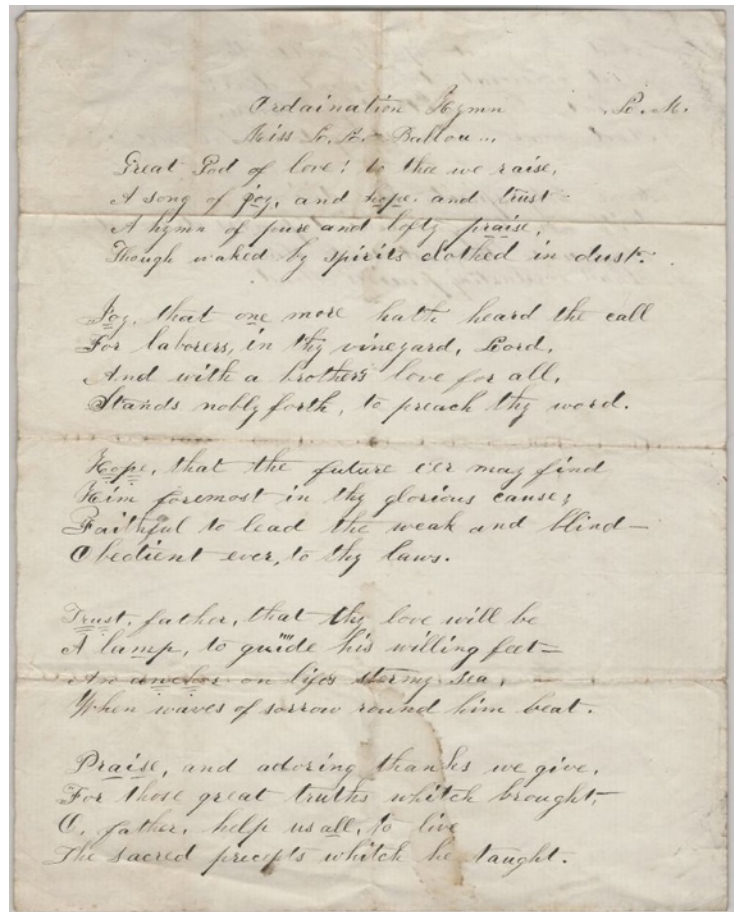 Ordaination Hymn L. M.
Miss L. H. Ballou
Great God of love! to thee we raise,
A song of joy, and hope, and trust
A hymn of pure and lofty praise,
Though waked by spirits clothed in dust.
Joy, that one more hath heard the call
For laborers, in thy vineyard, Lord,
And with a brothers love for all,
Stands nobly forth, to preach thy word.
Hope, that the future e'er may find
Him foremost in thy glorious cause;
Faithful to lead the weak and blind—
Obedient ever, to thy laws.
Trust, father, that thy love will be
A lamp, to guide his willing feet—
An anchor on lifes stormy sea,
When waves of sorrow round him beat.
Praise, and adoring thanks we give,
For those great truths whitch brought,
O, father, help us all, to live
The sacred precepts whitch he taught.